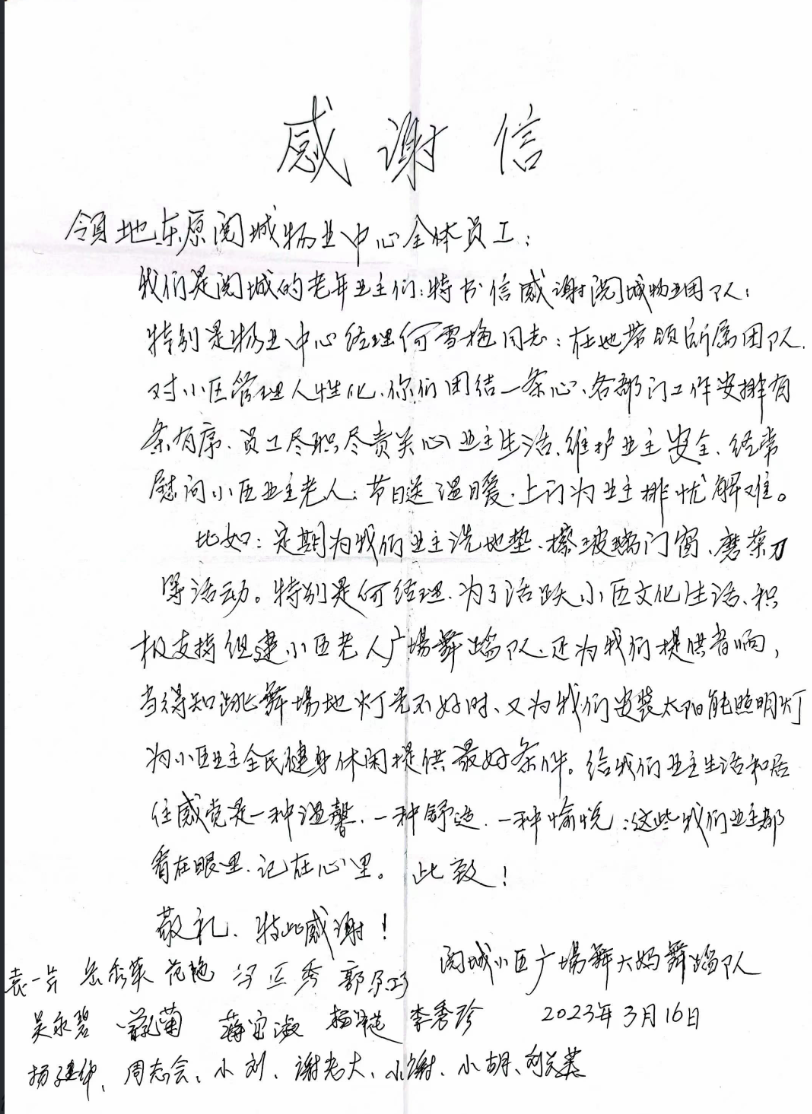 感谢信
领地东原阅城物业中心全体员工：
我们是阅城的老年业主们：特书信感谢阅城物业团队：
特别是物业中心经理何雪梅同志：在她带领所属团队.
对小区管理人性化、你们团结一条心、各部门工作安排有
条有序、员工尽职尽责关心业主生活、维护业主安全、经常
慰问小区业主老人：节日送温暖、上门为业主排忧解难。
比如：定期为我们业主洗地垫、擦玻璃门窗、磨菜刀
等活动。特别是何经理、为了活跃小区文化生活、积
极支持组建小区老人广场舞蹈队、还为我们提供音响，
当得知跳舞场地灯光不好时、又为我们安装太阳能照明灯
为小区业主全民健身休闲提供最好条件。给我们业主生活和居
住感觉是一种温馨、一种舒适、一种愉悦：这些我们业主都
看在眼里、记在心里。此致！
敬礼、特此感谢！
阅城小区广场舞大妈舞蹈队
袁一兵 范艳 冯正秀
吴永碧 李秀珍 2023年3月16日
杨建华、周志会、小刘、谢老大、小谢、小胡、